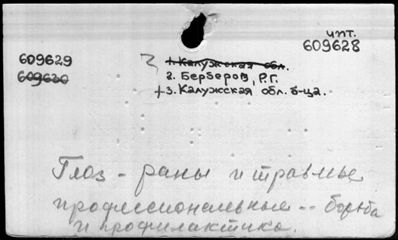 чит.
609628
609629
609630
1. Калужская обл.
2. Берберов, Р.Г.
+3. Калужская обл. б-ца.
Глаз - раны и травмы
профессиональные -- борьба
и профилактика.